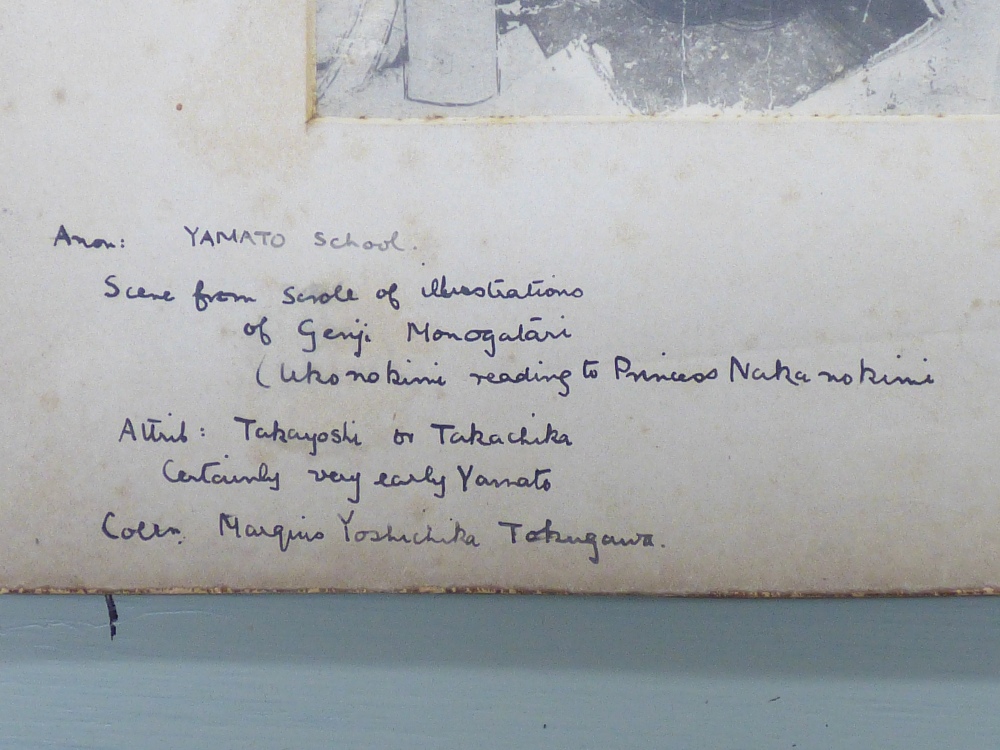 Anon: YAMATO School.
Scene from scrole of illustrations
of Genji Monogatari
(Uko no kimi reading to Princess Naka no kimi
Attrib: Takayoshi or Takachika
Certainly very early Yamato
Colln. Marquis Yoshichika Tokugawa.